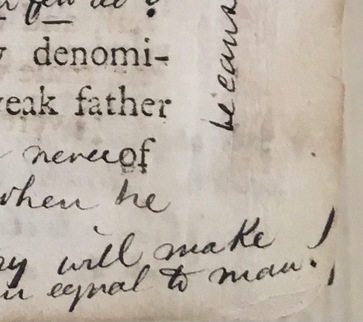 few do?
denomi-
weak father
never of
when he
will make
equal to man!
becaus